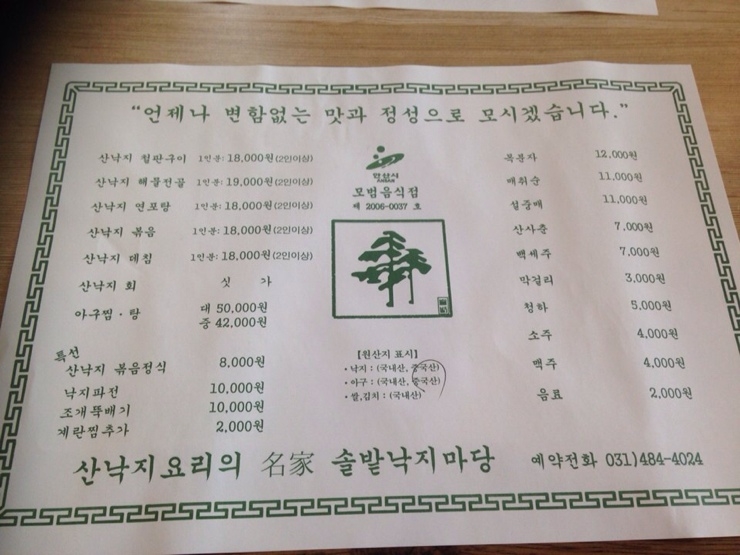 “언제나 변함없는 맛과 정성으로 모시겠습니다.”
산낙지 철판구이 1인분: 18,000원(2인이상)
산낙지 해물전골 1인분: 19,000원(2인이상)
산낙지 연포탕 1인분: 18,000원(2인이상)
산낙지 볶음 1인분: 18,000원(2인이상)
산낙지 데침 1인분: 18,000원(2인이상)
산낙지 회 싯 가
아구찜 · 탕 대 50,000원
중 42,000원
특선
산낙지 볶음정식 8,000원
낙지파전 10,000원
조개뚝배기 10,000원
계란찜추가 2,000원
안산시
ANSAN
모범음식점
제 2006-0037 호
【원산지 표시】
· 낙지 : (국내산, 중국산)
· 아구 : (국내산, 중국산)
· 쌀,김치 : (국내산)
복분자 12,000원
매취순 11,000원
설중매 11,000원
산사춘 7,000원
백세주 7,000원
막걸리 3,000원
청하 5,000원
소주 4,000원
맥주 4,000원
음료 2,000원
산낙지요리의 名家 솔밭낙지마당 예약전화 031)484-4024